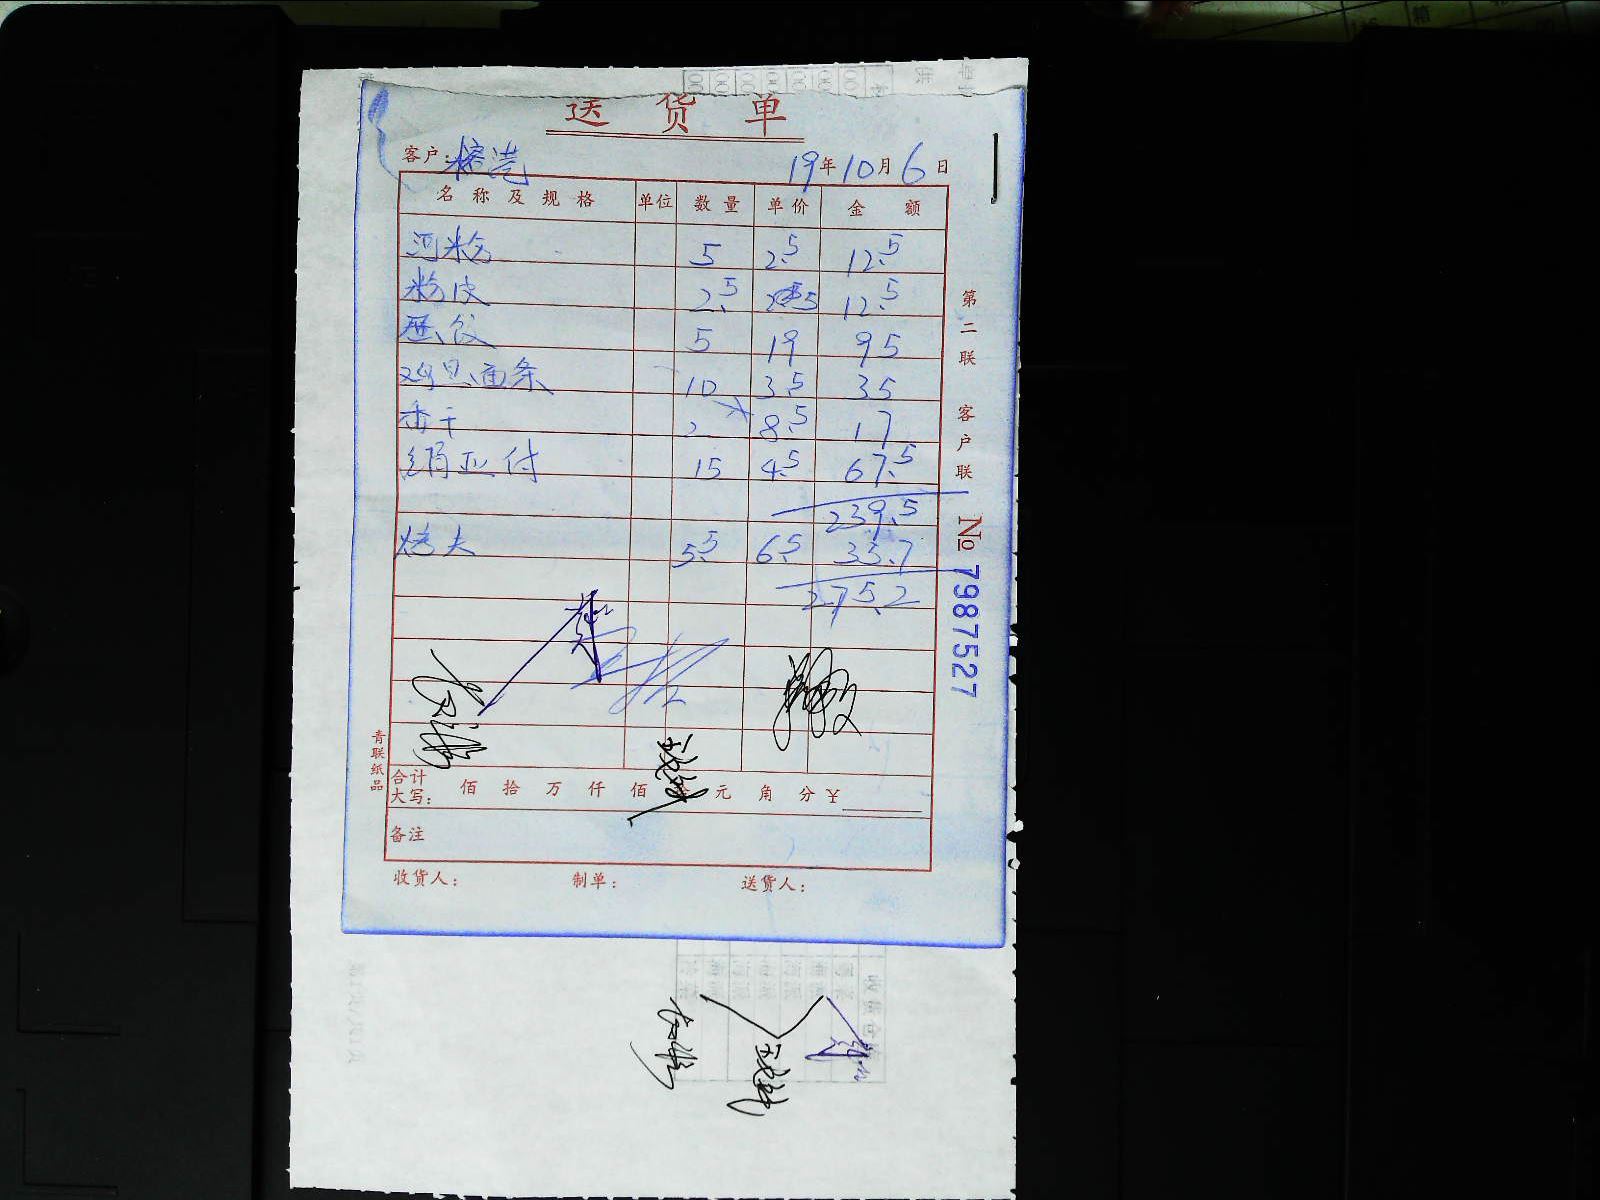 送货单
客户：榕港 19年10月6日
名称及规格 单位 数量 单价 金额
河粉 5 2.5 12.5
粉皮 2.5 5 12.5
5 19 95
鸡旦面条 10 3.5 35
香干 2 8.5 17
15 4.5 67.5
239.5
烤夫 5.5 6.5 35.7
275.2
合计大写： 佰 拾 万 仟 佰 元 角 分 ¥
备注
收货人： 制单： 送货人：
第二联 客户联
№ 7987527
青联纸品